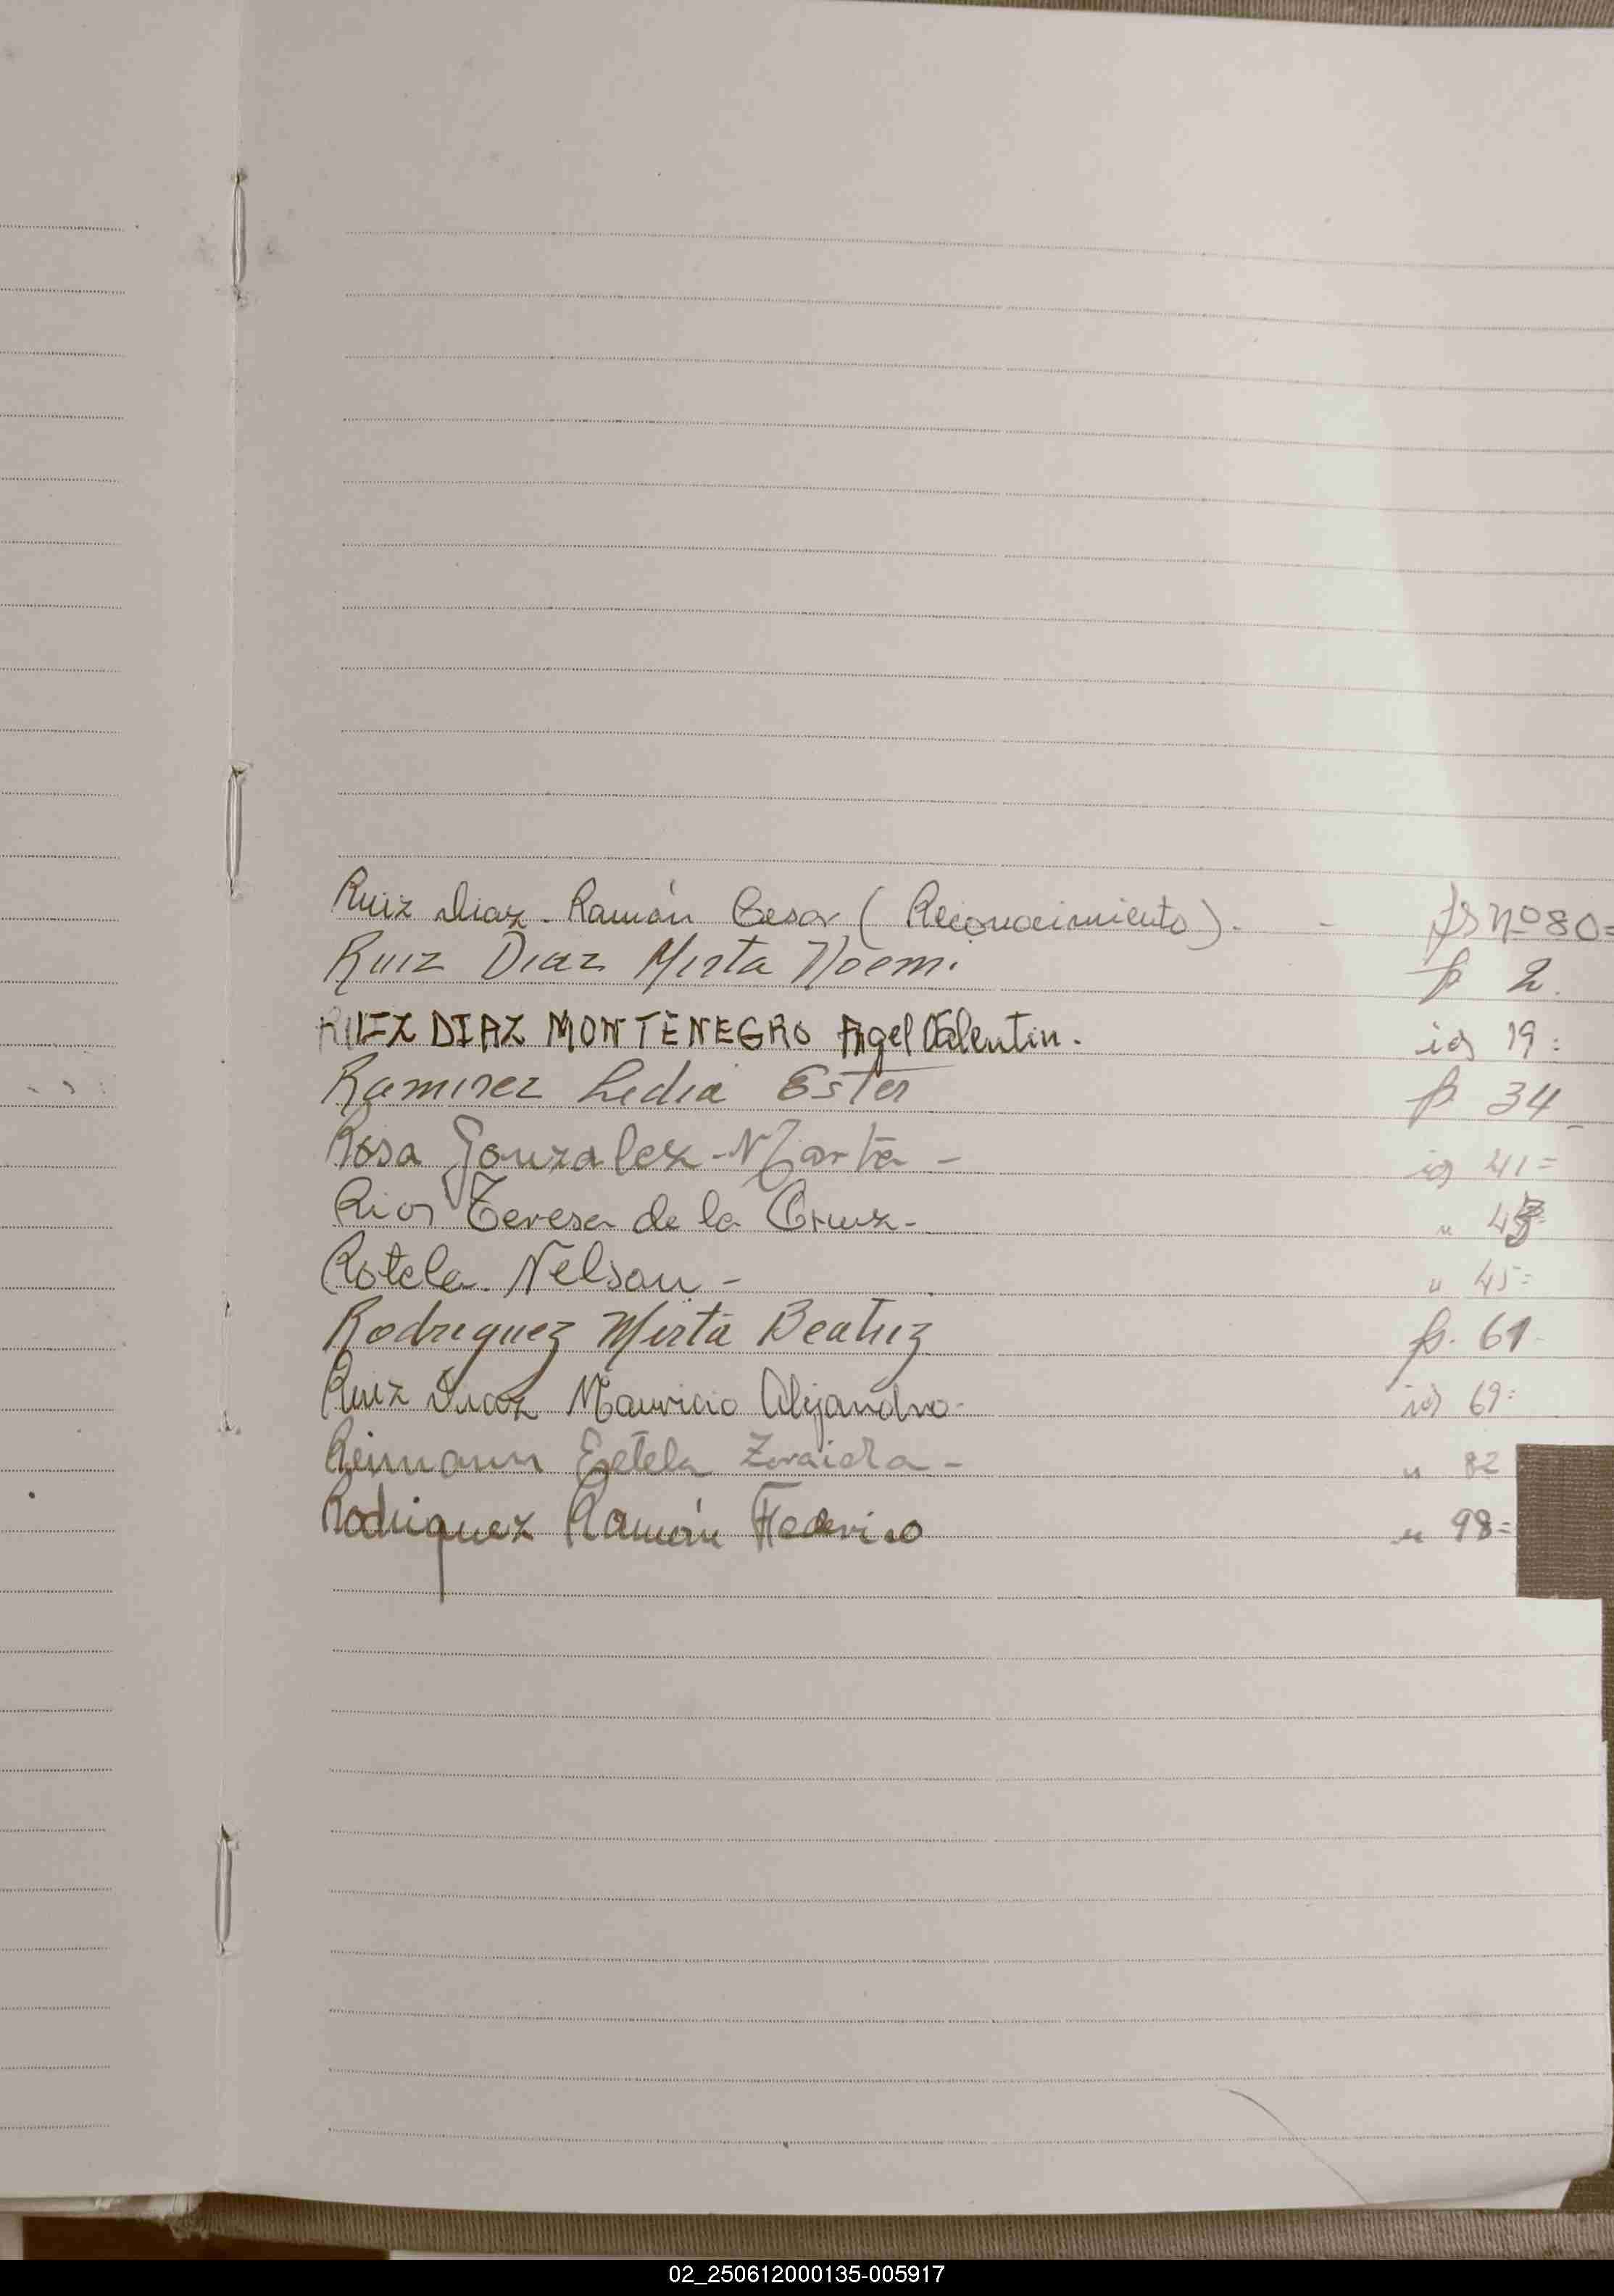 Ruiz Diaz - Ramón Cesar (Reconocimiento). - fs nº 80=
Ruiz Diaz Mirta Noemi fs 2.
RUIZ DIAZ MONTENEGRO Angel Valentin. id 19=
Ramirez Ledia Ester fs. 34
Rosa Gonzalez - Marta - id 41=
Rios Teresa de la Cruz - "
Rotela Nelson - " 45=
Rodriguez Mirta Beatriz fs. 61
Ruiz Diaz Mauricio Alejandro - id 69=
Reimann Estela Zoraida - " 82
Rodriguez Ramón Federico " 98=
02_250612000135-005917